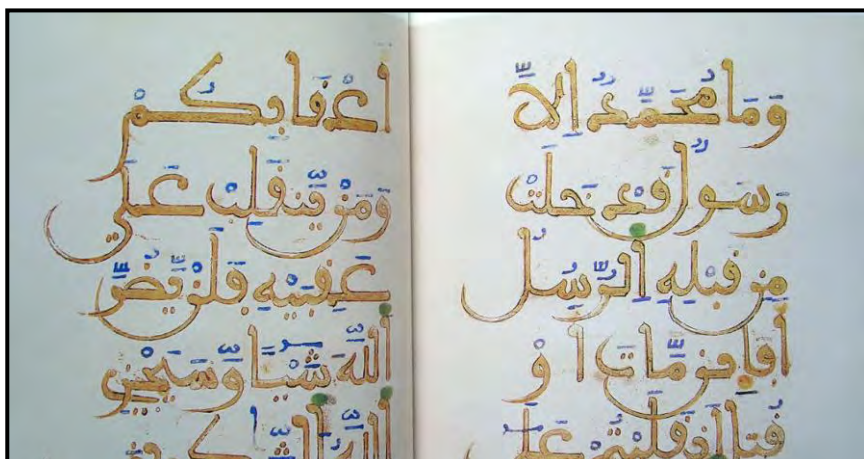 وَمَا مُحَمَّدٌ إِلَّا
رَسُولٌ قَدْ خَلَتْ
مِن قَبْلِهِ الرُّسُلُ
أَفَإِين مَّاتَ أَوْ
قُتِلَ انقَلَبْتُمْ عَلَى
أَعْقَابِكُمْ
وَمَنْ يَّنقَلِبْ عَلَى
عَقِبَيْهِ فَلَنْ يَّضُرَّ
اللَّهَ شَيْـًٔا وَسَيَجْزِي
اللَّهُ الشَّٰكِرِينَ